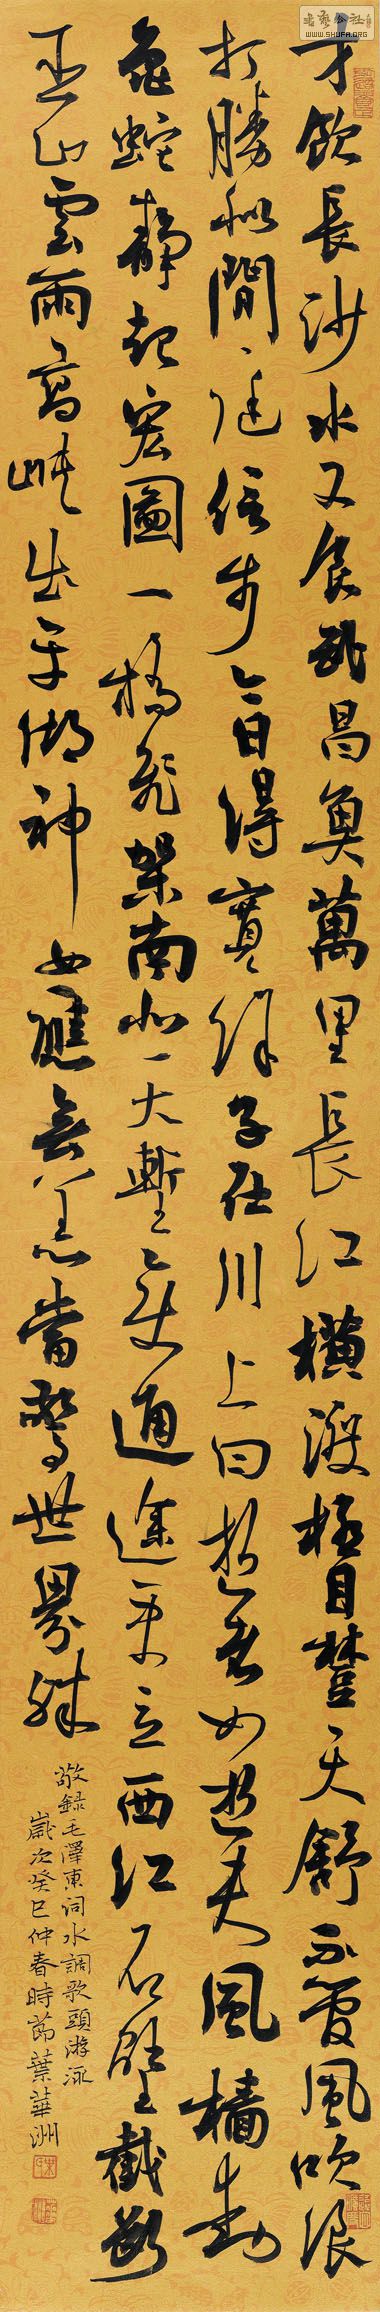 才飲長沙水又食武昌魚萬里長江橫渡極目楚天舒不管風吹浪
打勝似閒庭信步今日得寬餘子在川上曰逝者如斯夫風檣動
龜蛇靜起宏圖一橋飛架南北天塹變通途更立西江石壁截斷
巫山雲雨高峽出平湖神女應無恙當驚世界殊
敬錄毛澤東詞水調歌頭游泳
歲次癸巳仲春時節葉華洲
WWW.SHUFA.ORG